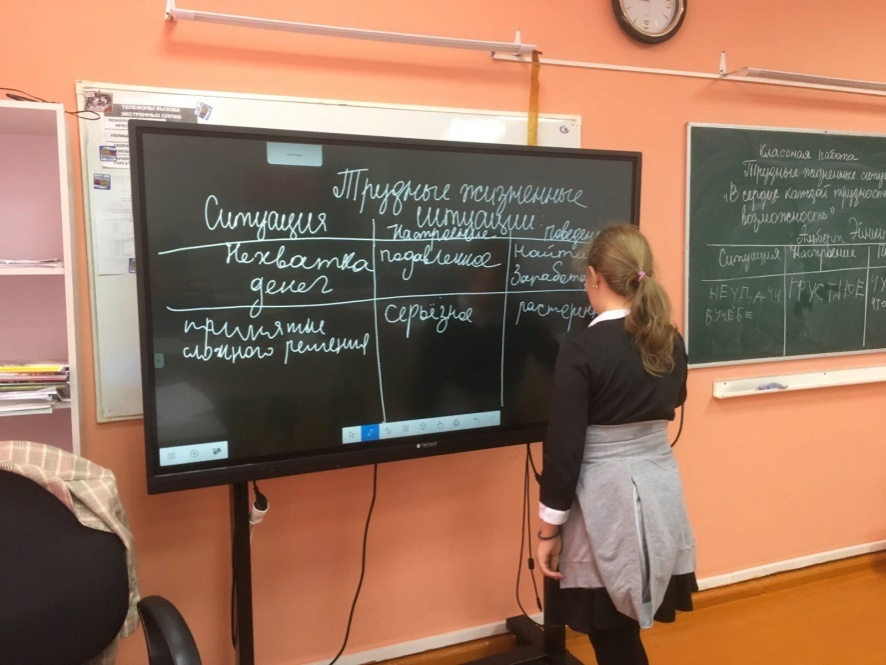 ТЕЛЕФОНЫ ВЫЗОВА
ЭКСТРЕННЫХ СЛУЖБ
Трудные жизненные
ситуации:
Ситуация
Настроение
Нехватка
денег
подавленное
Найти
принятие
сложного решения
серьёзное
Классная работа
Трудные жизненные
"В сердце каждой
возможность"
Альберт
Ситуация
Настроение
НЕУДАЧИ
В УЧЕБЕ
ГРУСТНОЕ